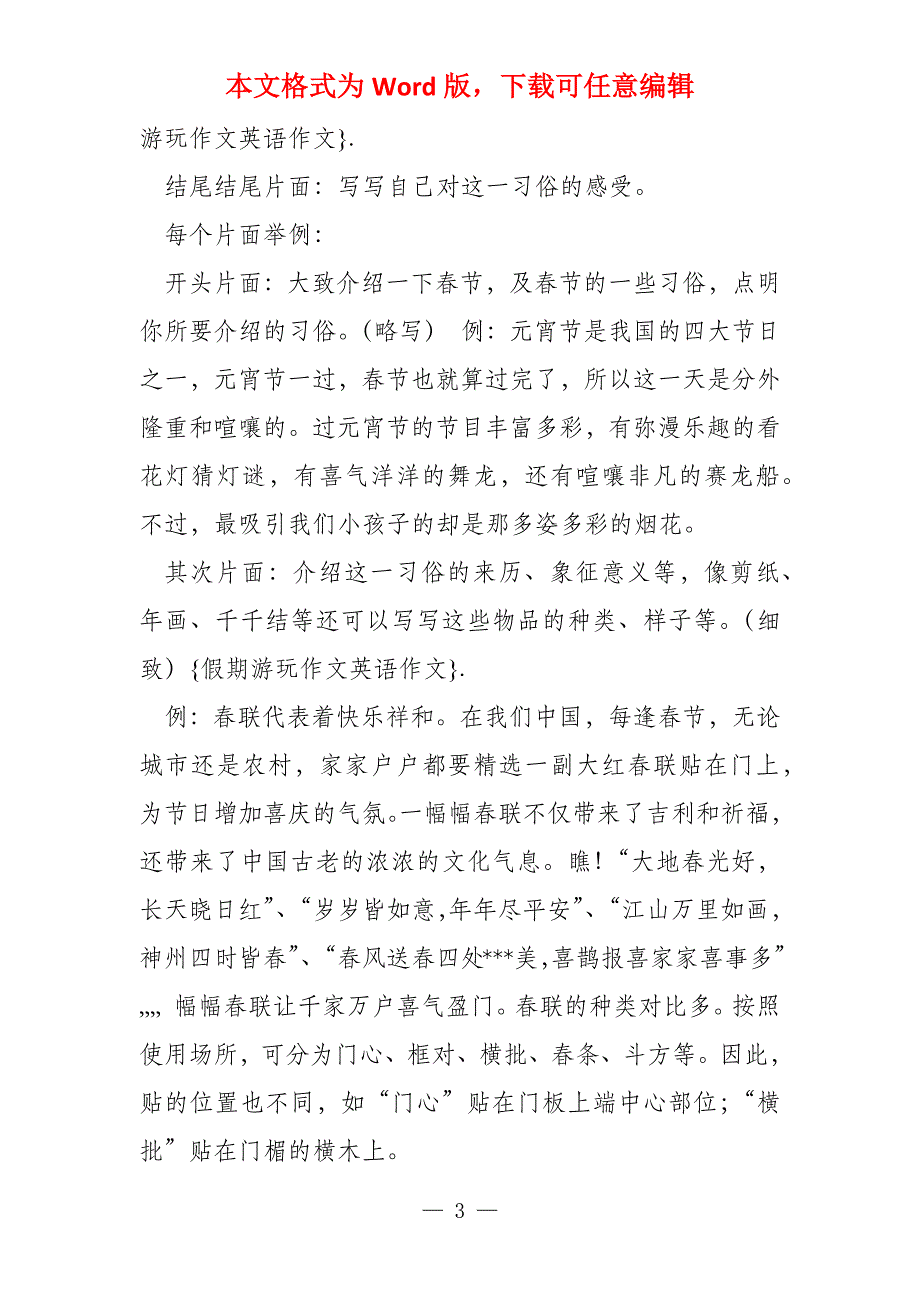 本文格式为 Word 版，下载可任意编辑
游玩作文英语作文}.
结尾结尾片面：写写自己对这一习俗的感受。
每个片面举例：
开头片面：大致介绍一下春节，及春节的一些习俗，点明
你所要介绍的习俗。（略写） 例：元宵节是我国的四大节日
之一，元宵节一过，春节也就算过完了，所以这一天是分外
隆重和喧嚷的。过元宵节的节目丰富多彩，有弥漫乐趣的看
花灯猜灯谜，有喜气洋洋的舞龙，还有喧嚷非凡的赛龙船。
不过，最吸引我们小孩子的却是那多姿多彩的烟花。
其次片面：介绍这一习俗的来历、象征意义等，像剪纸、
年画、千千结等还可以写写这些物品的种类、样子等。（细
致）{假期游玩作文英语作文}.
例：春联代表着快乐祥和。在我们中国，每逢春节，无论
城市还是农村，家家户户都要精选一副大红春联贴在门上，
为节日增加喜庆的气氛。一幅幅春联不仅带来了吉利和祈福，
还带来了中国古老的浓浓的文化气息。瞧！“大地春光好，
长天晓日红”、“岁岁皆如意，年年尽平安”、“江山万里如画，
神州四时皆春”、“春风送春四处***美，喜鹊报喜家家喜事多”
„„ 幅幅春联让千家万户喜气盈门。春联的种类对比多。按照
使用场所，可分为门心、框对、横批、春条、斗方等。因此，
贴的位置也不同，如“门心”贴在门板上端中心部位；“横
批”贴在门楣的横木上。
— 3 —